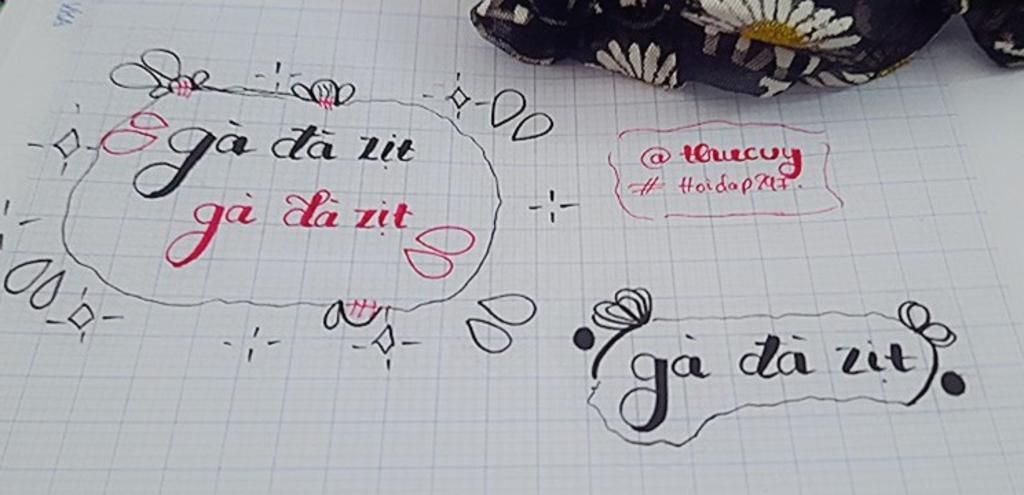 gà đà zịt
gà đà zịt
@ thuecuy
# Hoidap247.
gà đà zịt